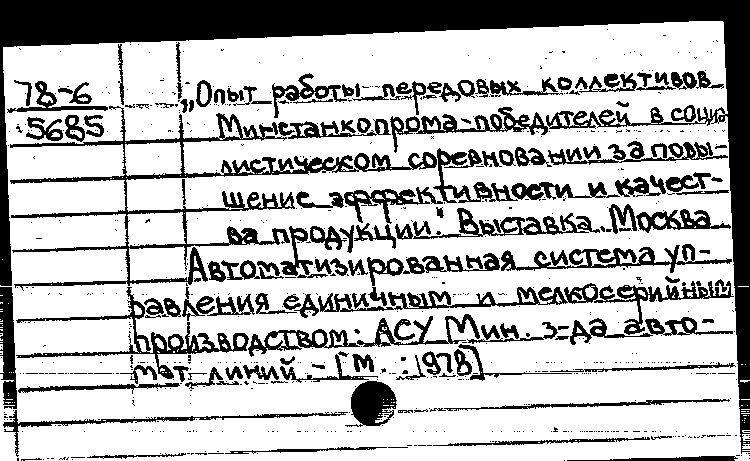 78-6
5685
„Опыт работы передовых коллективов
Минстанкопрома-победителей в социа
листическом соревновании за повы-
шение эффективности и качест-
ва продукции." Выставка. Москва
Автоматизированная система уп-
равления единичным и мелкосерийным
производством: АСУ Мин. з-да авто-
мат. линий. - [М. : 1978].